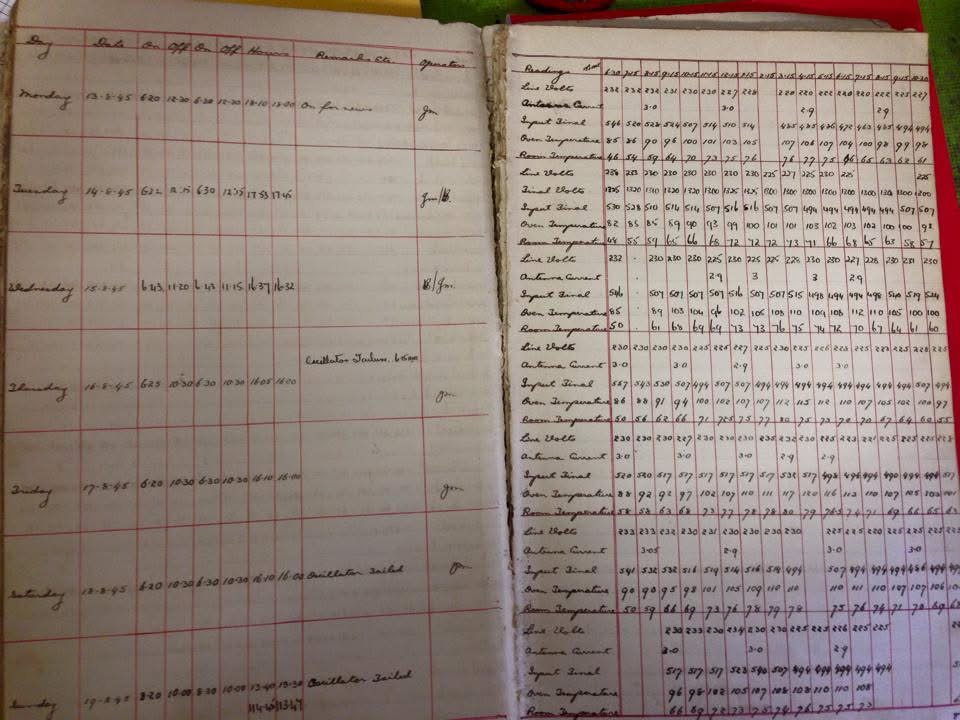 Day Date On Off On Off Hours Remarks Etc. Operator
Monday 13-8-45 6-20 12-30 6-30 12-30 18-10 18-00 On for news Jm
Tuesday 14-8-45 6-22 6-30 12-15 17-53 17-45 Jm/B.
Wednesday 15-8-45 6-43 11-20 6-43 11-15 16-37 16-32 B/Jm.
Oscillator Failure.
Thursday 16-8-45 6-25 10-30 6-30 10-30 16-05 16-00 Jm
Friday 17-8-45 6-20 10-30 6-30 10-30 16-10 16-00 Jm
Saturday 18-8-45 6-20 10-30 6-30 10-30 16-10 16-00 Oscillator Failed Jm
Sunday 19-8-45 8-20 10-00 8-30 10-00 13-40 13-30 Oscillator Failed
Readings 6-30 7-15 8-15 9-15 10-15 11-15 12-15 1-15 2-15 3-15 4-15 5-15 6-15 7-15 8-15 9-15 10-30
Line Volts 232 232 232 231 230 230 227 228 220 220 222 220 222 222 225 227
Antenna Current 3-0 3-0 2-9 2-9
Input Final 546 520 528 524 507 514 510 514 494 494
Oven Temperature 85 86 90 96 100 101 103 105 107 106 107 104 100 98 99 98
Room Temperature 46 54 59 64 70 73 75 76 76 77 75 66 65 63 62 61
Line Volts 230 230 230 230 230 225 227 225 230 225 225
Final Volts 1320 1310 1320 1320 1300 1300 1300 1300 1300 1300 1300 1300
Input Final 530 528 510 514 514 507 516 516 507 507 494 494 494 494 494 507 507
Oven Temperature 82 85 85 89 90 93 99 100 101 101 103 102 103 102 100 100 98
Room Temperature 44 55 59 65 66 68 72 72 72 73 71 66 68 65 63 58 57
Line Volts 232 230 230 230 225 230 225 225 228 230 230 227 228 230 231 230
Antenna Current 2-9 3 3 2-9
Input Final 546 507 507 507 507 516 507 507 515 498 494 494 498 540 519 524
Oven Temperature 85 89 103 104 96 102 105 108 110 109 108 112 110 105 100 100
Room Temperature 50 61 68 69 69 73 73 76 75 74 72 70 67 64 61 60
Line Volts 230 230 230 230 225 226 227 225 230 225 226 223 225 222 225 228 225
Antenna Current 3-0 3-0 2-9 3-0 3-0
Input Final 557 543 530 507 494 507 507 494 494 494 494 494 494 494 494 507 494
Oven Temperature 86 88 91 94 100 102 107 107 112 115 112 110 107 105 102 100 97
Room Temperature 50 56 62 66 71 75 77 80 75 73 70 70 67 64 60 55
Line Volts 230 230 230 227 230 230 230 235 232 230 225 223 221 225 225 225 228
Antenna Current 3-0 3-0 3-0 2-9 2-9
Input Final 520 520 517 517 517 517 517 517 532 517 498 494 494 490 494 494 517
Oven Temperature 88 92 92 97 102 107 110 111 117 120 116 113 110 107 105 102 101
Room Temperature 58 58 63 68 73 77 78 78 80 79 76-5 74 71 69 66 65 63
Line Volts 233 233 232 231 231 230 230 230 230 225 225 220 225 225 225 225
Antenna Current 3-05 2-9 3-0 3-0
Input Final 541 532 532 516 519 514 516 514 494 507 494 494 494 486 494 494
Oven Temperature 90 90 95 98 101 105 109 110 110 110 111 110 107 107 106
Room Temperature 50 59 66 69 73 76 78 79 78 75 76 74 71 70 69
Line Volts 230 233 230 234 230 230 225 225 226 225 225
Antenna Current 3-0 3-0 2-9
Input Final 517 517 517 523 540 507 494 494 494 494 494
Oven Temperature 96 98 102 105 107 108 108 110 110 108
Room Temperature 66 69 72 73 75 74 76 75 75 73